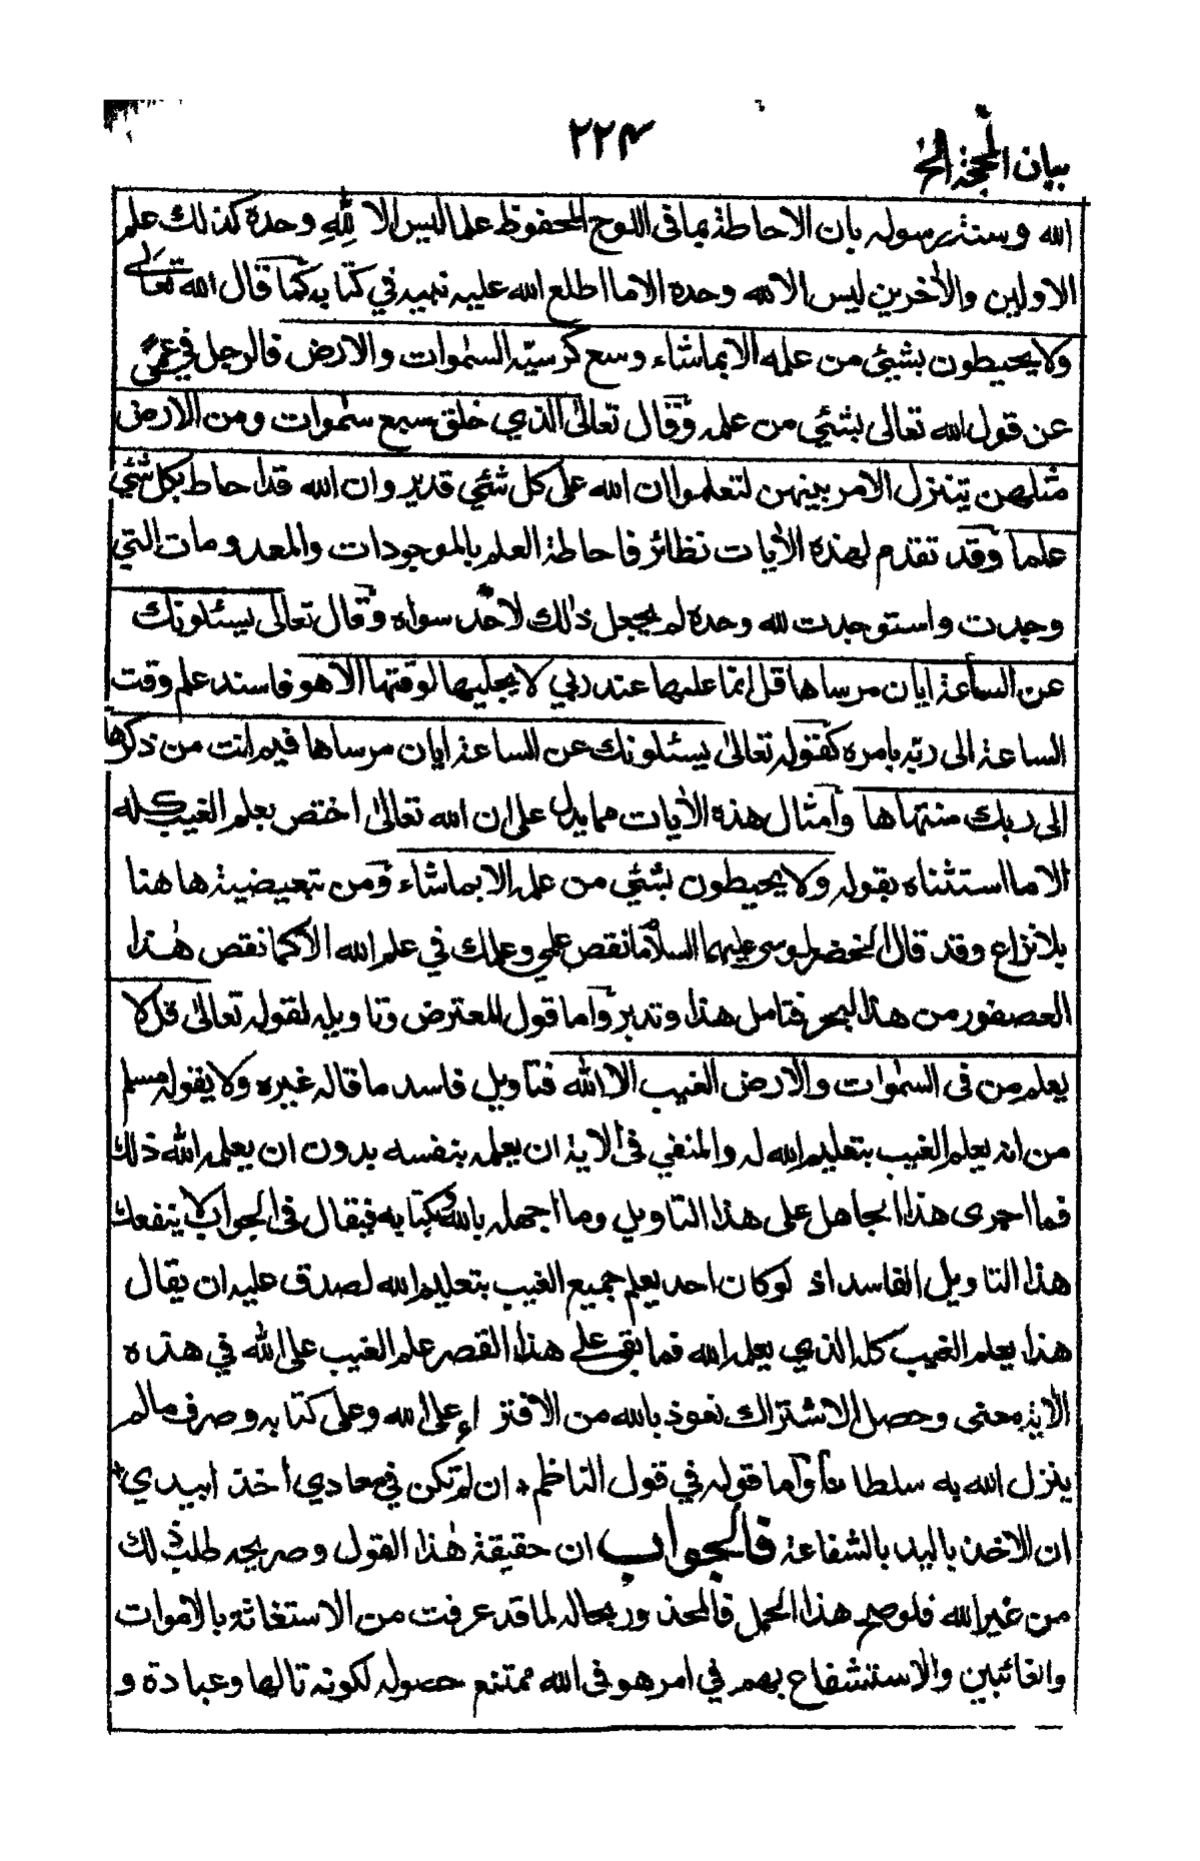 بيان المحجة الخ
٢٢٤
الله وسنة رسوله بان الاحاطة بما في اللوح المحفوظ علما ليس الا لله وحده كذلك علم
الاولين والأخرين ليس الا لله وحده الا ما اطلع الله عليه نبيه في كتابه كما قال الله تعالى
ولا يحيطون بشئ من علمه الا بما شاء وسع كرسيه السمٰوات والارض فالرجل في عمى
عن قول الله تعالى بشئي من علمه وقال تعالىٰ الذي خلق سبع سمٰوات ومن الارض
مثلهن يتنزل الامر بينهن لتعلموا ان الله على كل شئي قدير وان الله قد احاط بكل شئي
علما وقد تقدم لهذه الأيات نظائر فاحاطة العلم بالموجودات والمعدومات التي
وجدت واستوجدت لله وحده لم يجعل ذلك لاحد سواه وقال تعالى يسئلونك
عن الساعة ايان مرساها قل انما علمها عند ربي لا يجليها لوقتها الا هو فاسند علم وقت
الساعة الى ربه بامره كقوله تعالىٰ يسئلونك عن الساعة ايان مرساها فيم انت من ذكرها
الى ربك منتهاها وامثال هذه الأيات مما يدل على ان الله تعالىٰ اختص بعلم الغيب كله
الا ما استثناه بقوله ولا يحيطون بشئي من علمه الا بما شاء ومن تبعيضية هاهنا
بلا نزاع وقد قال الخضر لموسى عليهما السلام ما نقص علمي وعلمك في علم الله الا كما نقص هٰذا
العصفور من هذا البحر فتامل هذا وتدبر واما قول المعترض وتاويله لقوله تعالىٰ قل لا
يعلم من في السمٰوات والارض الغيب الا الله فتاويل فاسد ما قاله غيره ولا يقوله مسلم
من انه يعلم الغيب بتعليم الله له والمنفي في الأية ان يعلمه بنفسه بدون ان يعلمه الله ذلك
فما اجرى هذا الجاهل على هذا التاويل وما اجهله بالله وبكتابه فيقال في الجواب لا ينفعك
هذا التاويل الفاسد اذ لو كان احد يعلم جميع الغيب بتعليم الله لصدق عليه ان يقال
هذا يعلم الغيب كله الذي يعلمه الله فما بقى على هذا القصر علم الغيب على الله في هذه
الأية معنى وحصل الاشتراك نعوذ بالله من الافتراء على الله وعلى كتابه وصرف ما لم
ينزل الله به سلطانا واما قوله في قول الناظم ان لم تكن في معادي أخذا بيدي
ان الاخذ باليد بالشفاعة فالجواب ان حقيقة هٰذا القول وصريحه طلب ذلك
من غير الله فلو صح هذا الحمل فالمحذور بحاله لما قد عرفت من الاستغاثة بالاموات
والغائبين والاستشفاع بهم في امر هو في الله ممتنع حصوله لكونه تالها وعبادة و